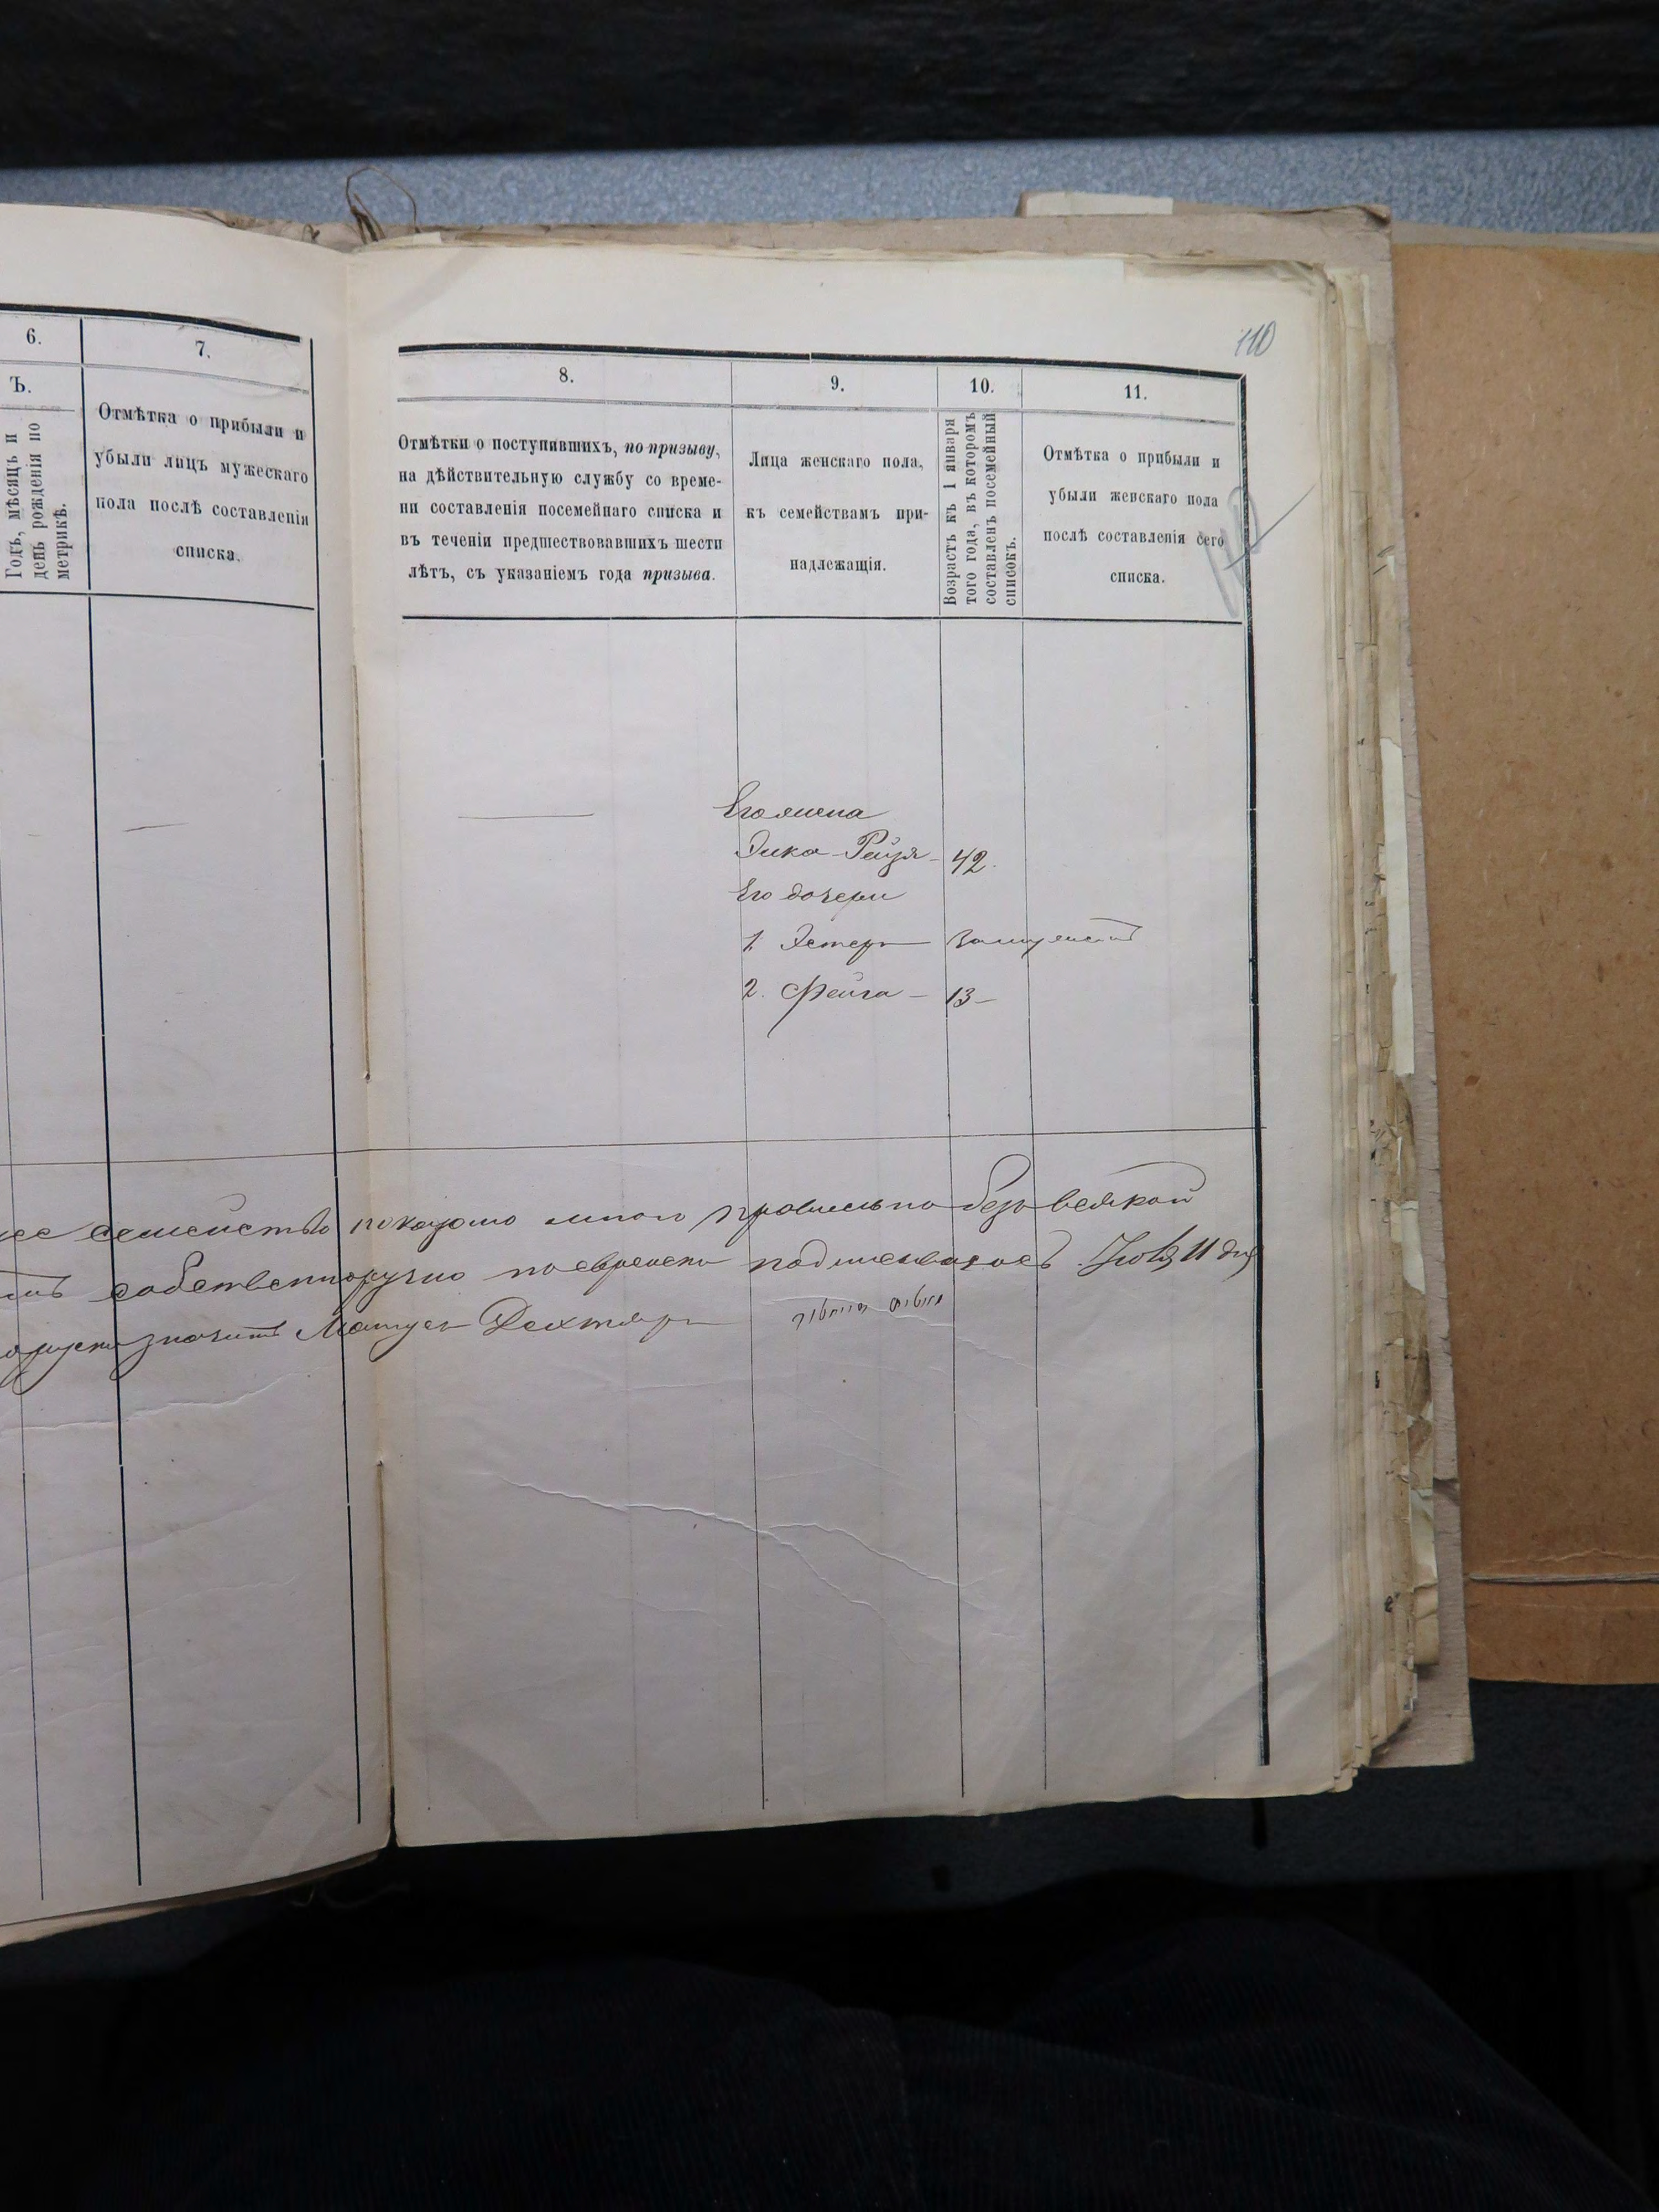 110
6.
7.
Ъ.
Годъ, мѣсяцъ и
день рожденія по
метрикѣ.
Отмѣтка о прибыли и
убыли лицъ мужескаго
пола послѣ составленія
списка.
8.
9.
10.
11.
Отмѣтки о поступившихъ, по призыву,
на дѣйствительную службу со време-
ни составленія посемейнаго списка и
въ теченіи предшествовавшихъ шести
лѣтъ, съ указаніемъ года призыва.
Лица женскаго пола,
къ семействамъ при-
надлежащія.
Возрастъ къ 1 января
того года, въ которомъ
составленъ посемейный
списокъ.
Отмѣтка о прибыли и
убыли женскаго пола
послѣ составленія сего
списка.
Его жена
Рейзя - 42.
Его дочери
1. Эстеръ
2. Фейга - 13 -
семейство показано мною правильно безъ всякой
собственноручно по еврейски подписываюсь. 11 дня
значитъ Дехтяръ